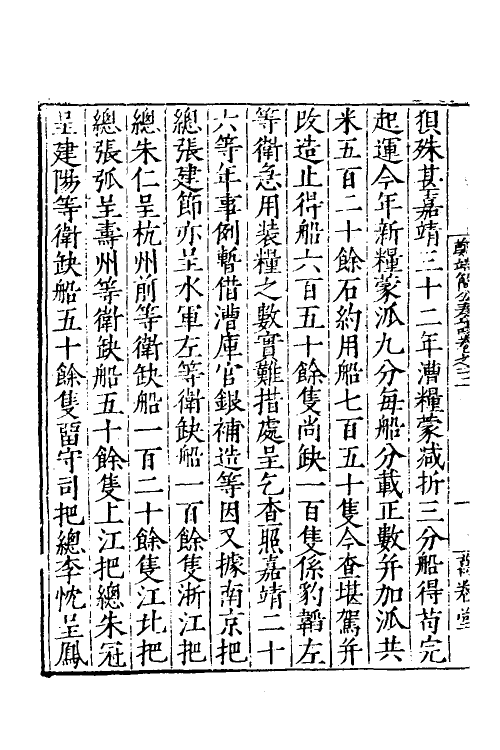 狽殊甚嘉靖三十二年漕糧蒙減折三分船得苟完
起運今年新糧蒙派九分每船分載正數并加派共
米五百二十餘石約用船七百五十隻今查堪駕并
改造止得船六百五十餘隻尚缺一百隻係豹韜左
等衛急用裝糧之數實難措處呈乞查照嘉靖二十
六等年事例暫借漕庫官銀補造等因又據南京把
總張建節亦呈水軍左等衛缺船一百餘隻浙江把
總朱仁呈杭州前等衛缺船一百二十餘隻江北把
總張弧呈壽州等衛缺船五十餘隻上江把總朱冠
呈建陽等衛缺船五十餘隻留守司把總李忱呈鳳
鄭端簡公奏議卷之二
一